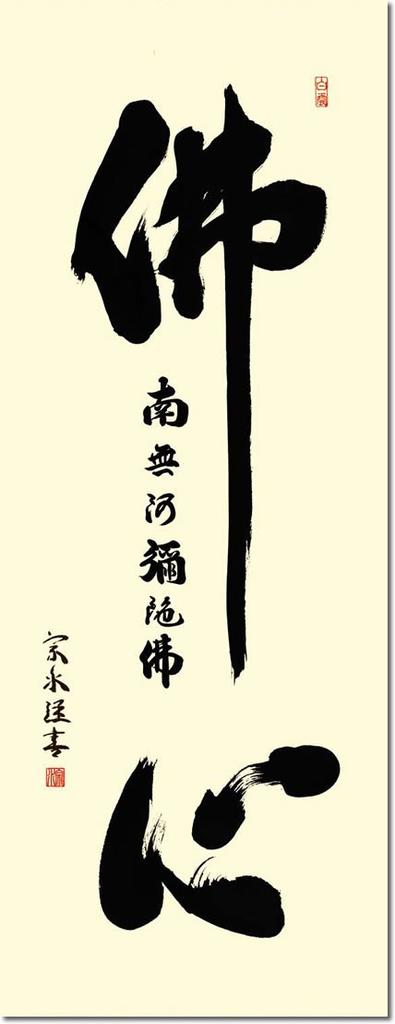 佛心
南無阿彌陀佛
宗永謹書